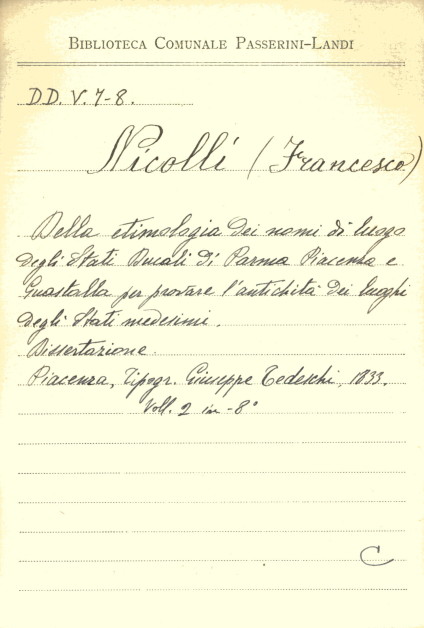 BIBLIOTECA COMUNALE PASSERINI-LANDI
DD. V. 7-8.
Nicolli (Francesco)
Della etimologia dei nomi di luogo
degli Stati Ducali di Parma Piacenza e
Guastalla per provare l'antichità dei luoghi
degli Stati medesimi.
Dissertazione.
Piacenza, Tipogr. Giuseppe Tedeschi, 1833.
Voll. 2 in-8°
C